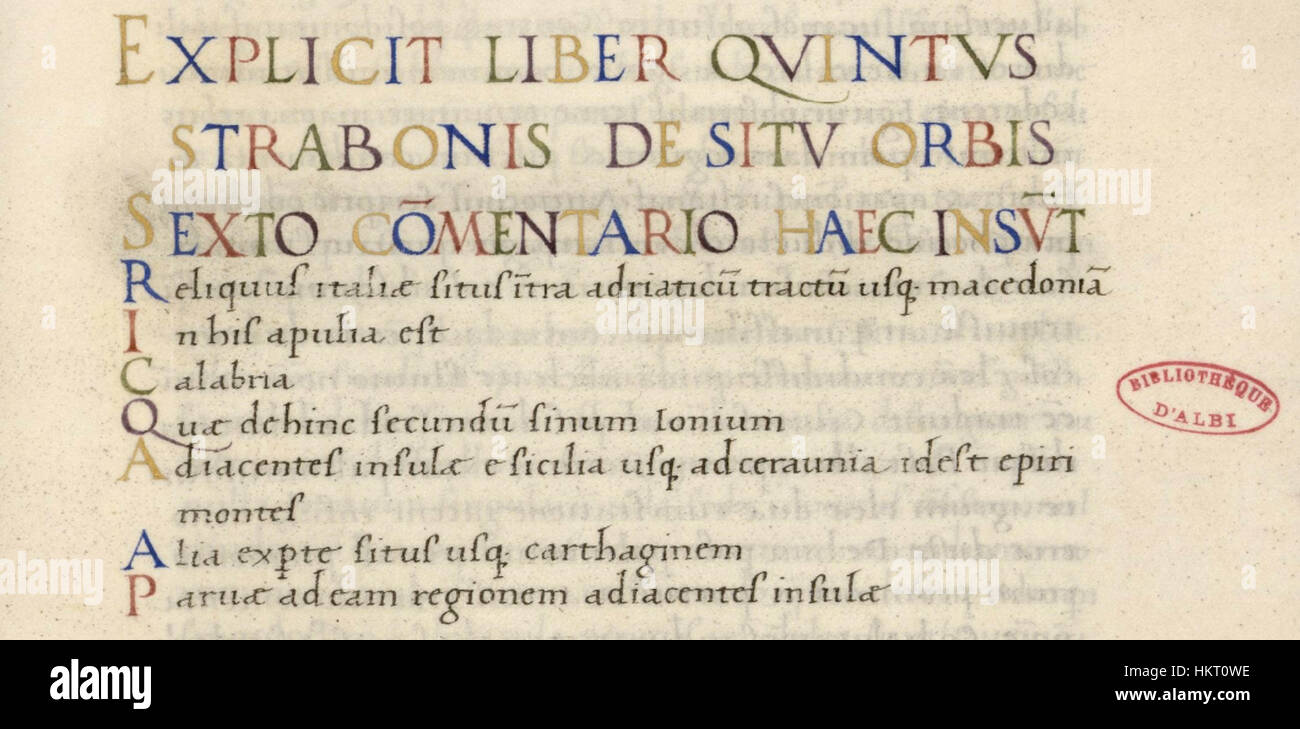 EXPLICIT LIBER QVINTVS
STRABONIS DE SITV ORBIS
SEXTO CŌMENTARIO HAEC INSVT̄
Reliquus italiæ situs ītra adriaticū tractū usq; macedoniā
In his apulia est
Calabria
Quæ dehinc secundū sinum Ionium
Adiacentes insulæ e sicilia usq; ad ceraunia idest epiri
montes
Alia ex ꝑte situs usq; carthaginem
Paruæ ad eam regionem adiacentes insulæ
BIBLIOTHÈQUE
D'ALBI
alamy
alamy
Image ID: HKT0WE
www.alamy.com